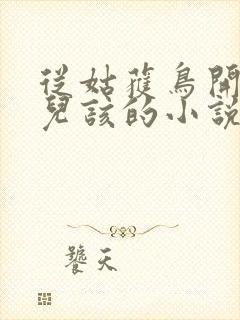 從姑獲鳥開
兒該的小說
饕天